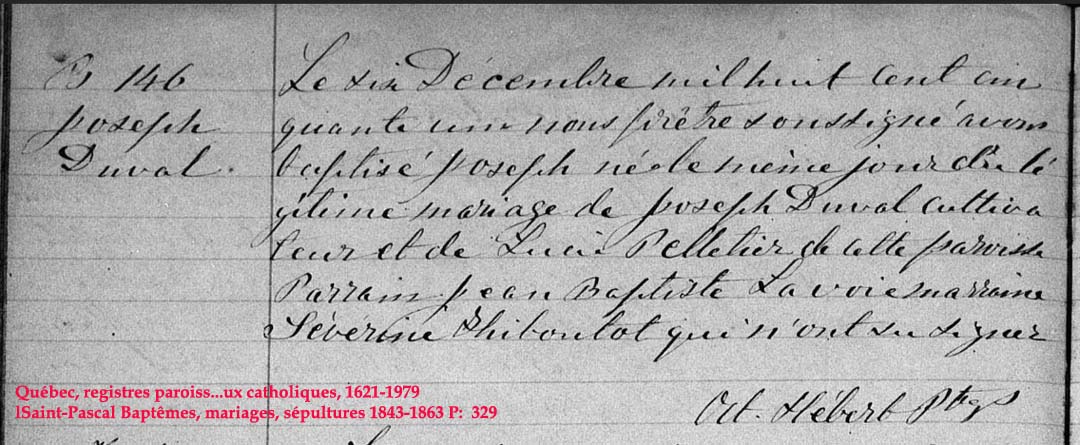 B 146
Joseph
Duval.
Le six Décembre mil huit cent cin
quante un nous prêtre soussigné avons
baptisé Joseph né le même jour du lé
gitime mariage de Joseph Duval cultiva
teur et de Luci Pelletier de cette paroisse
Parrain Jean Baptiste Lavoie marraine
Séverine Thiboutot qui n'ont su signer
Oct. Hébert Ptre
Québec, registres paroiss...ux catholiques, 1621-1979
lSaint-Pascal Baptêmes, mariages, sépultures 1843-1863 P: 329